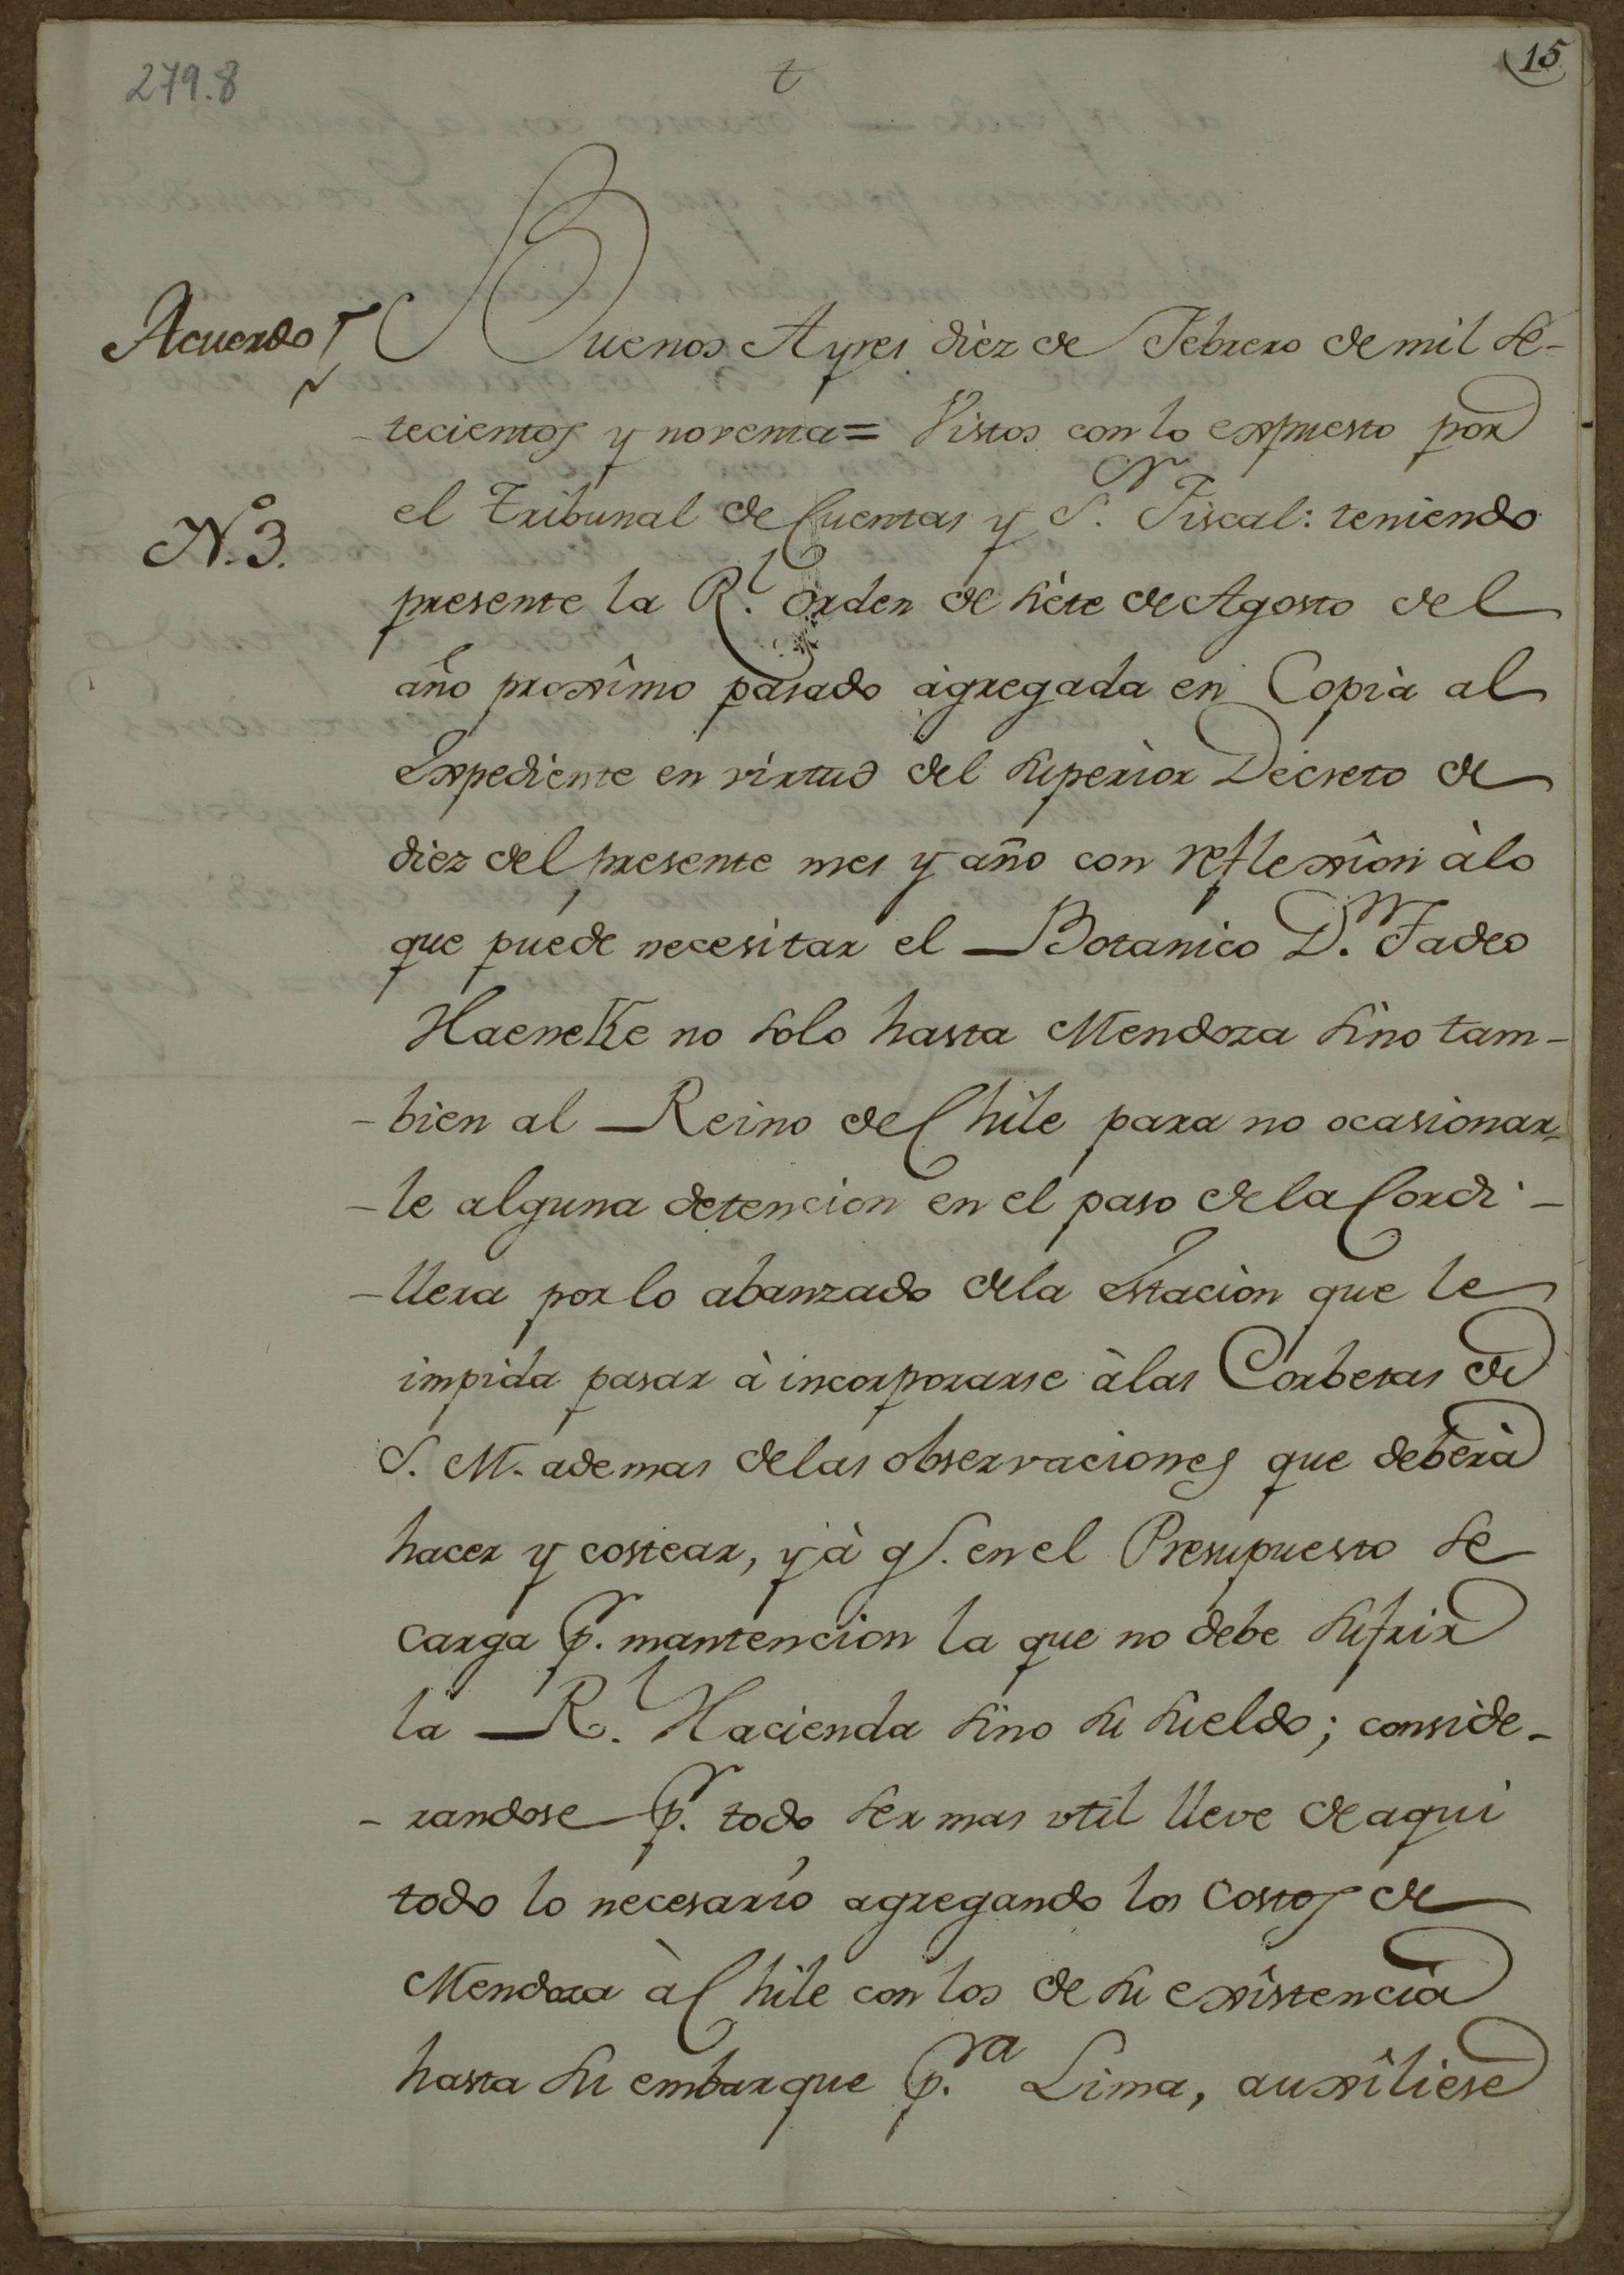 279.8
t
15
Acuerdo
Buenos Ayres diez de Febrero de mil se-
-tecientos y noventa= Vistos con lo expuesto por
el Tribunal de Cuentas y S.r Fiscal: teniendo
N.o 3.
presente la R.l orden de siete de Agosto del
año proximo pasado àgregada en Copià al
Expediente en virtud del superior Decreto de
diez del presente mes y año con reflexion àlo
que puede necesitar el Botanico D.n Tadeo
HaeneKe no solo hasta Mendoza sino tam-
-bien al Reino de Chile para no ocasionar-
-le alguna detencion en el paso de la Cordi-
-llera por lo abanzado dela Estaciòn que le
impida pasar à incorporarse àlas Corbetas de
S. M. ademas delas observaciones que deberà
hacer y costear, yà q.e en el Presupuesto se
carga p.r mantencion la que no debe sufrir
la R.l Hacienda sino su sueldo; conside-
-randose p.r todo ser mas vtil lleve de aqui
todo lo necesario agregando los Costos de
Mendoza à Chile con los de su existencia
hasta su embarque p.ra Lima, auxîliese